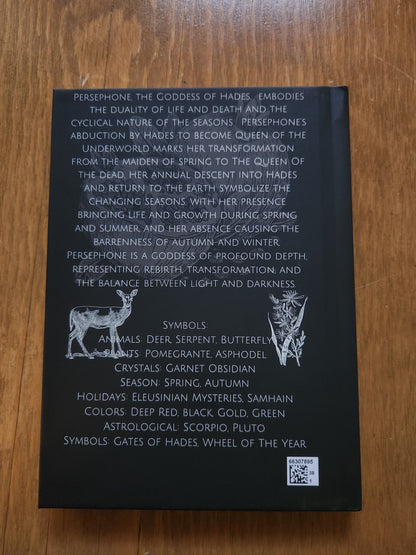 Persephone, the Goddess of Hades, embodies
the duality of life and death and the
cyclical nature of the seasons. Persephone's
abduction by Hades to become Queen of the
Underworld marks her transformation
from the maiden of spring to The Queen of
the Dead. Her annual descent into Hades
and return to the earth symbolize the
changing seasons, with her presence
bringing life and growth during spring
and summer, and her absence causing the
barrenness of autumn and winter.
Persephone is a goddess of profound depth,
representing rebirth, transformation, and
the balance between light and darkness.
Symbols:
Animals: Deer, Serpent, Butterfly
Plants: Pomegrante, Asphodel
Crystals: Garnet Obsidian
Season: Spring, Autumn
Holidays: Eleusinian Mysteries, Samhain
Colors: Deep Red, Black, Gold, Green
Astrological: Scorpio, Pluto
Symbols: Gates of Hades, Wheel of The Year
66307895
38
1